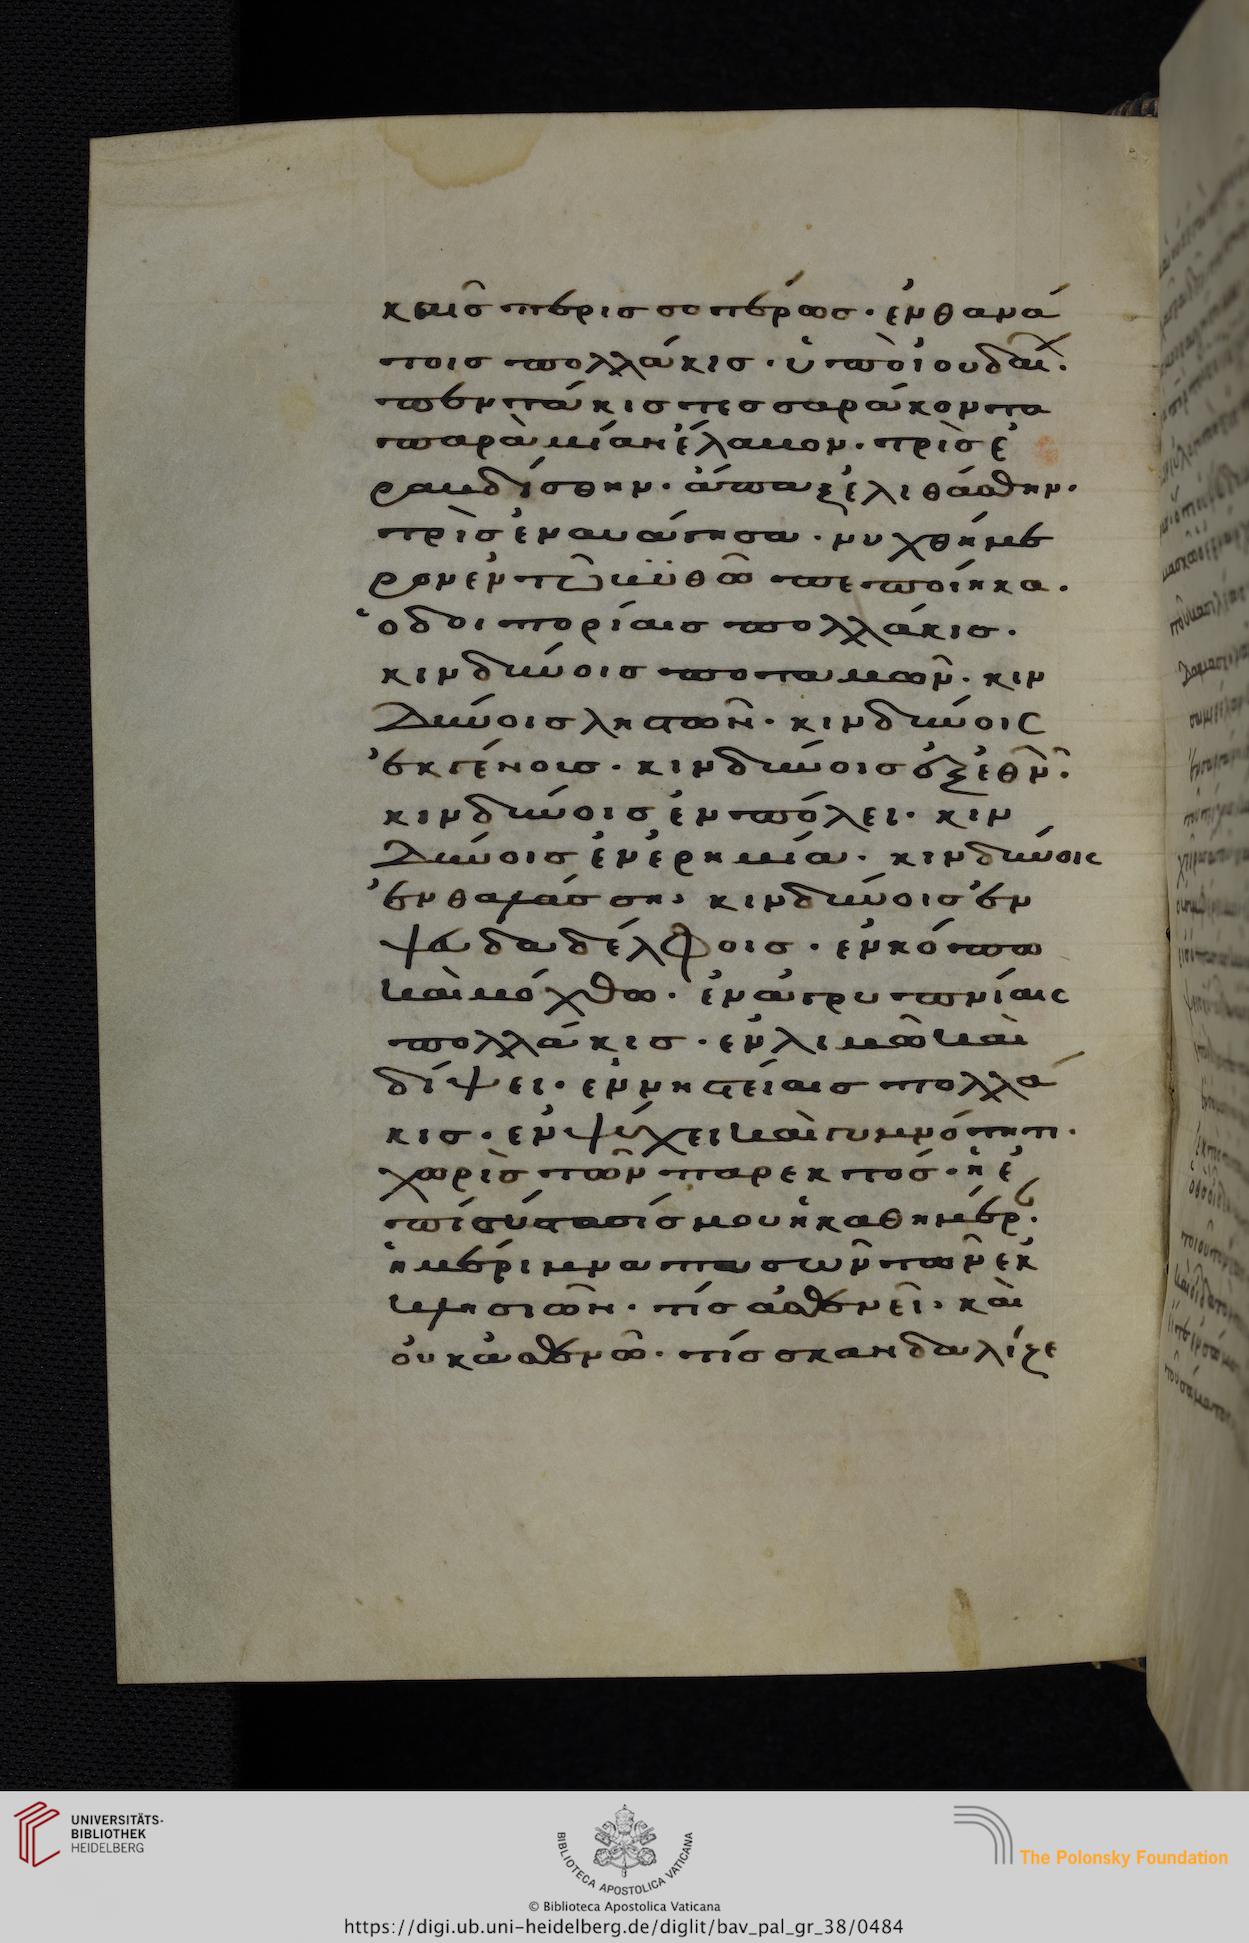 καῖς περισσοτέρως· ἐν θανά
τοις πολλάκις· ὑπὸ ἰουδαί·
πεντάκις τεσσαράκοντα
παρὰ μίαν ἔλαβον· τρὶς ἐ
ραβδίσθην· ἅπαξ ἐλιθάσθην·
τρὶς ἐναυάγησα· νυχθήμε
ρον ἐν τῷ βϋθῶ πεποίηκα·
ὁδοιπορίαις πολλάκις·
κινδύνοις ποταμῶν· κιν
δύνοις ληστῶν· κινδύνοις
ἐκ γένους· κινδύνοις ἐξ ἐθνῶ·
κινδύνοις ἐν πόλει· κιν
δύνοις ἐν ἐρημία· κινδύνοις
ἐν θαλάσση, κινδύνοις ἐν
ψευδαδέλφοις· ἐν κόπω
καὶ μόχθω· ἐν ἀγρυπνίαις
πολλάκις· ἐν λιμῶ καὶ
δίψει· ἐν νηστείαις πολλά
κις· ἐν ψύχει καὶ γυμνότητι·
χωρὶς τῶν παρεκτός· ἡ ἐ
πισύστασίς μου ἡ καθημέρ·
ἡ μέριμνα πασῶν τῶν ἐκ
κλησιῶν· τίς ἀσθενεῖ· καὶ
οὐκ ἀσθενῶ· τίς σκανδαλίζε
UNIVERSITÄTS-
BIBLIOTHEK
HEIDELBERG
BIBLIOTECA APOSTOLICA VATICANA
The Polonsky Foundation
© Biblioteca Apostolica Vaticana
https://digi.ub.uni-heidelberg.de/diglit/bav_pal_gr_38/0484